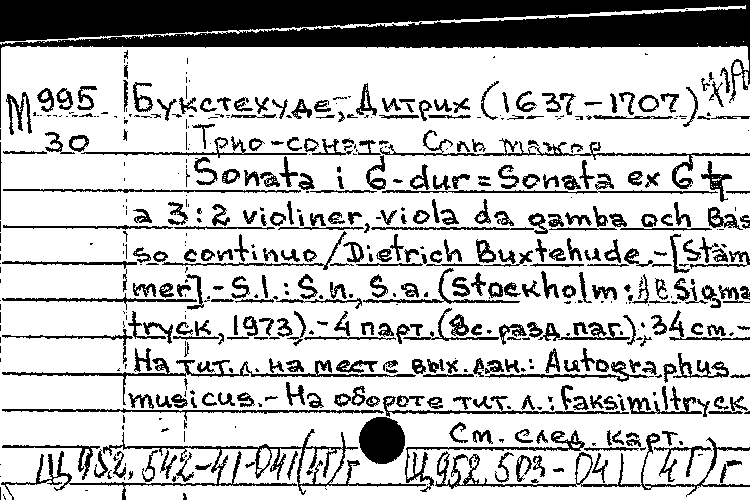 М 995 Букстехуде, Дитрих (1637-1707).
30 Трио-соната Соль мажор
Sonata i G-dur = Sonata ex G ♮
a 3:2 violiner, viola da gamba och Bas
so continuo / Dietrich Buxtehude.-[Stäm
mer].-S.l.: S.n., S.a. (Stockholm: AB Sigma
tryck, 1973).-4 парт. (8с. разд. паг.); 34 см.-
На тит. л. на месте вых. дан.: Autographus
musicus.-На обороте тит. л.: faksimiltryck
См. след. карт.
Ц 952.542-41-041(4Г)г Ц 952.503-041(4Г)г